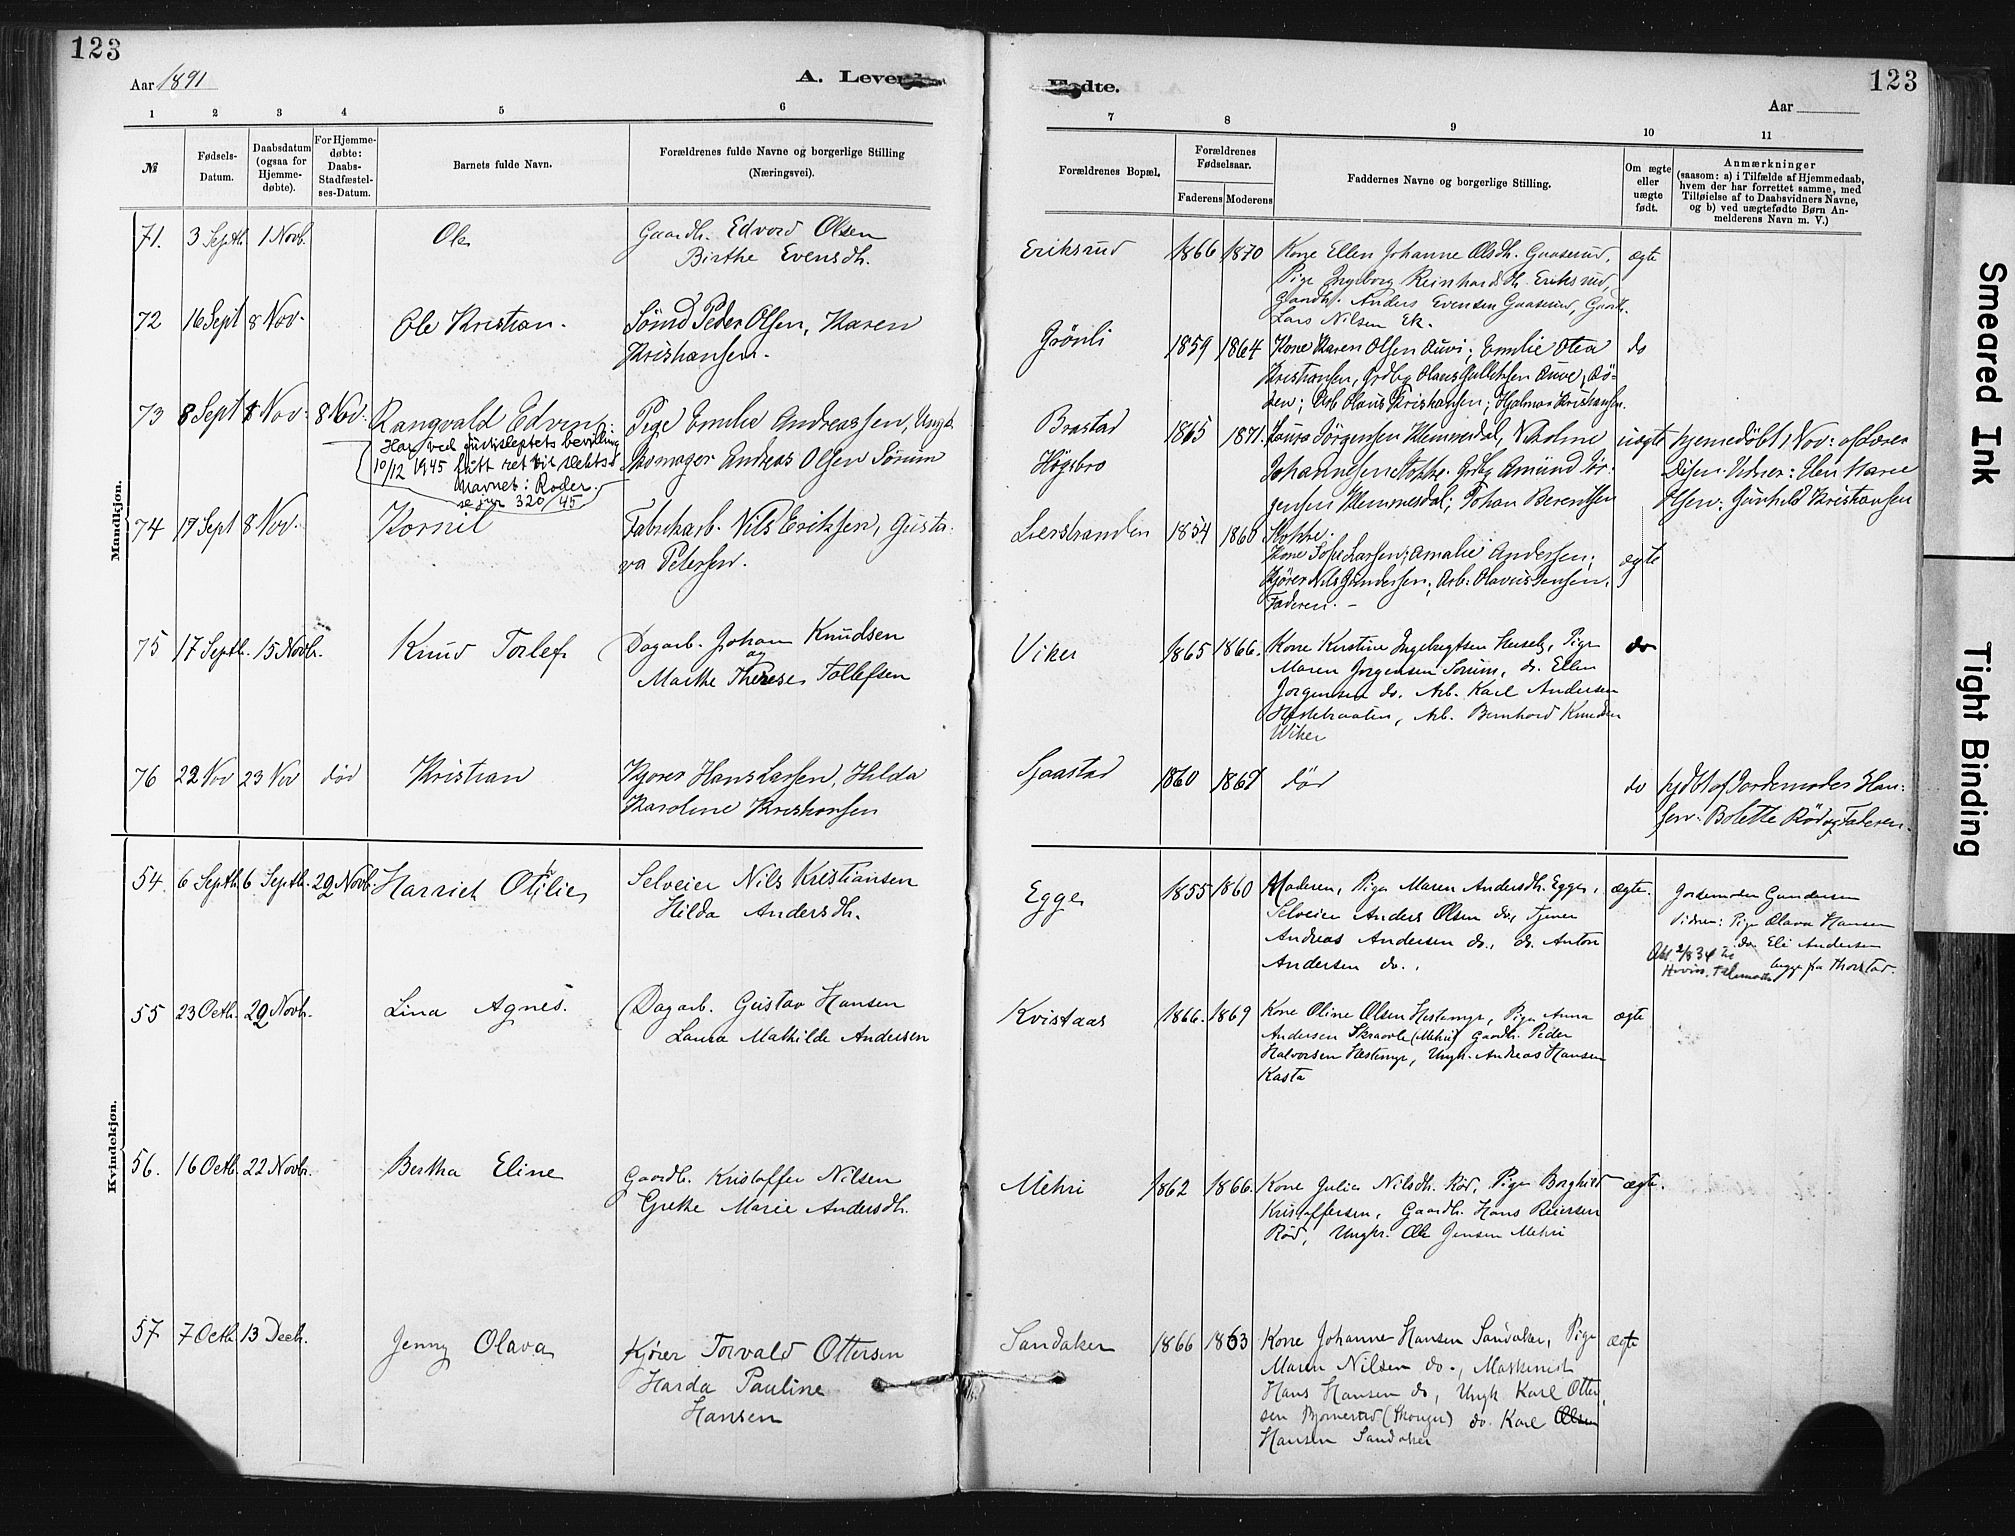 123
Aar 1891
A. Levende
1 2 3 4 5 6
№
Fødsels-Datum.
Daabsdatum (ogsaa for Hjemme-døbte).
For Hjemme-døbte: Daabs-Stadfæstel-ses-Datum.
Barnets fulde Navn.
Forældrenes fulde Navne og borgerlige Stilling
(Næringsvei).
Mandkjøn.
71. 3 Septb. 1 Novb. Ole Gaardb. Edvard Olsen
Birthe Evensdh.
72 16 Sept 8 Nov. Ole Kristian. Sömd Peder Olsen, Karen
Kristiansen.
73 8 Sept 8 Nov. 8 Nov. Rangvald Edvin Pige Emilie Andreassen, Ungk.
Har ved justisdeptets bevilling
10/12 1945 fått rett til slekts-
navnet: Roder.
se jnr 320/45
Skomager Andreas Olsen Sörum
74 17 Sept 8 Nov. Kornil Fabrikarb. Nils Eriksen, Gusta-
va Petersen.
75 17 Septb. 15 Novbr. Knud Torlef Dagarb. Johan Knudsen
og
Marthe Therese Tollefsen
76 22 Nov 23 Nov död Kristian Kjører Hans Larsen, Hilda
Karoline Kristiansen
Kvindekjøn.
54. 6 Septb. 6 Septb. 29 Novb. Harriet Othilie Selveier Nils Kristiansen
Hilda Andersdh.
55 23 Octb. 29 Novbr. Lina Agnes. Dagarb. Gustav Hansen
Laura Mathilde Andersen
56. 16 Octb. 22 Novbr. Bertha Eline Gaardb. Kristoffer Nilsen
Grethe Marie Andersdh.
57 7 Octb 13 Decbr. Jenny Olava Kjører Torvald Ottersen
Harda Pauline
Hansen
Fødte.
123
Aar
7 8 9 10 11
Forældrenes Bopæl.
Forældrenes Fødselsaar.
Faderens Moderens
Faddernes Navne og borgerlige Stilling.
Om ægte eller uægte født.
Anmærkninger
(saasom: a) i Tilfælde af Hjemmedaab,
hvem der har forrettet samme, med
Tilføielse af to Daabsvidners Navne,
og b) ved uægtefødte Børn An-
melderens Navn m. V.)
Eriksrud 1866 1870 Kone Ellen Johanne Olsdh. Gaaserud, ægte
Pige Ingeborg Reinhardsdh. Eriksrud,
Gaardb. Anders Evensen Gaaserud, Gaardb.
Lars Nilsen Ek.
Grönli 1859 1864 Kone Karen Olsen Auvi; Emilie Otea do
Kristiansen, Grdbr Olaus Gulliksen Auve,
Arb Olaus Kristiansen; Hjalmar Kristiansen.
Brastad 1865 1871. Laura Jörgensen Hemmesdal, uægte hjemmedöbt 1 Nov: af Lovise
Högsbro Johannesen Stokke. Grdbr Amund Jör-
Olsen. Vidner: Elen Marie
gensen Hemmesdal; Johan Berentsen
Olsen. Gunhild Kristiansen
Stokke.
Lierstranden 1854 1860 Kone Sofie Larsen; Amalie Andersen; ægte
Kjører Nils Gundersen; Arb. Olavus Jensen.
Faderen. -
Viker 1865 1866. Kone Kirstine Ingebregtsen Huseby, Pige do
Maren Jorgensen Sorum, do. Ellen
Jorgensen do. Arb. Karl Andersen
Hestebraaten, Arb. Bernhard Knudsen
Wiker
Sjaastad 1860 1867 död do hjdbt af Jordemoder Han-
sen. Bolette Rød og Faderen.
Egge 1855 1860 Moderen, Pige Maren Andersdh. Egge, ægte. Jordemoder Gundersen
Selveier Anders Olsen do, Tjener Vidner: Pige Olava Hansen
Andreas Andersen do., do. Anton do. Eli Andersen
Andersen do. begge fra Thorstad.
Kvistaas 1866. 1869 Kone Oline Olsen Hestemyr, Pige Anna ægte
Andersen Skraavle (Mehri) Gaardb. Peder
Halvorsen Hestemyr, Ungk. Andreas Hansen
Kasta
Mehri 1862 1866. Kone Julie Nilsdh. Röd, Pige Borghild ægte.
Kristoffersen, Gaardb. Hans Reiersen
Röd, Ungkr. Ole Jensen Mehri
Sandaker 1866 1863 Kone Johanne Hansen Sandaker, Pige ægte
Maren Nilsen do., Maskinist
Hans Hansen do, Ungk Karl Otter-
sen Bjornerud (Skouger) do. Karl Olsen
Hansen Sandaker
Smeared Ink
Tight Binding